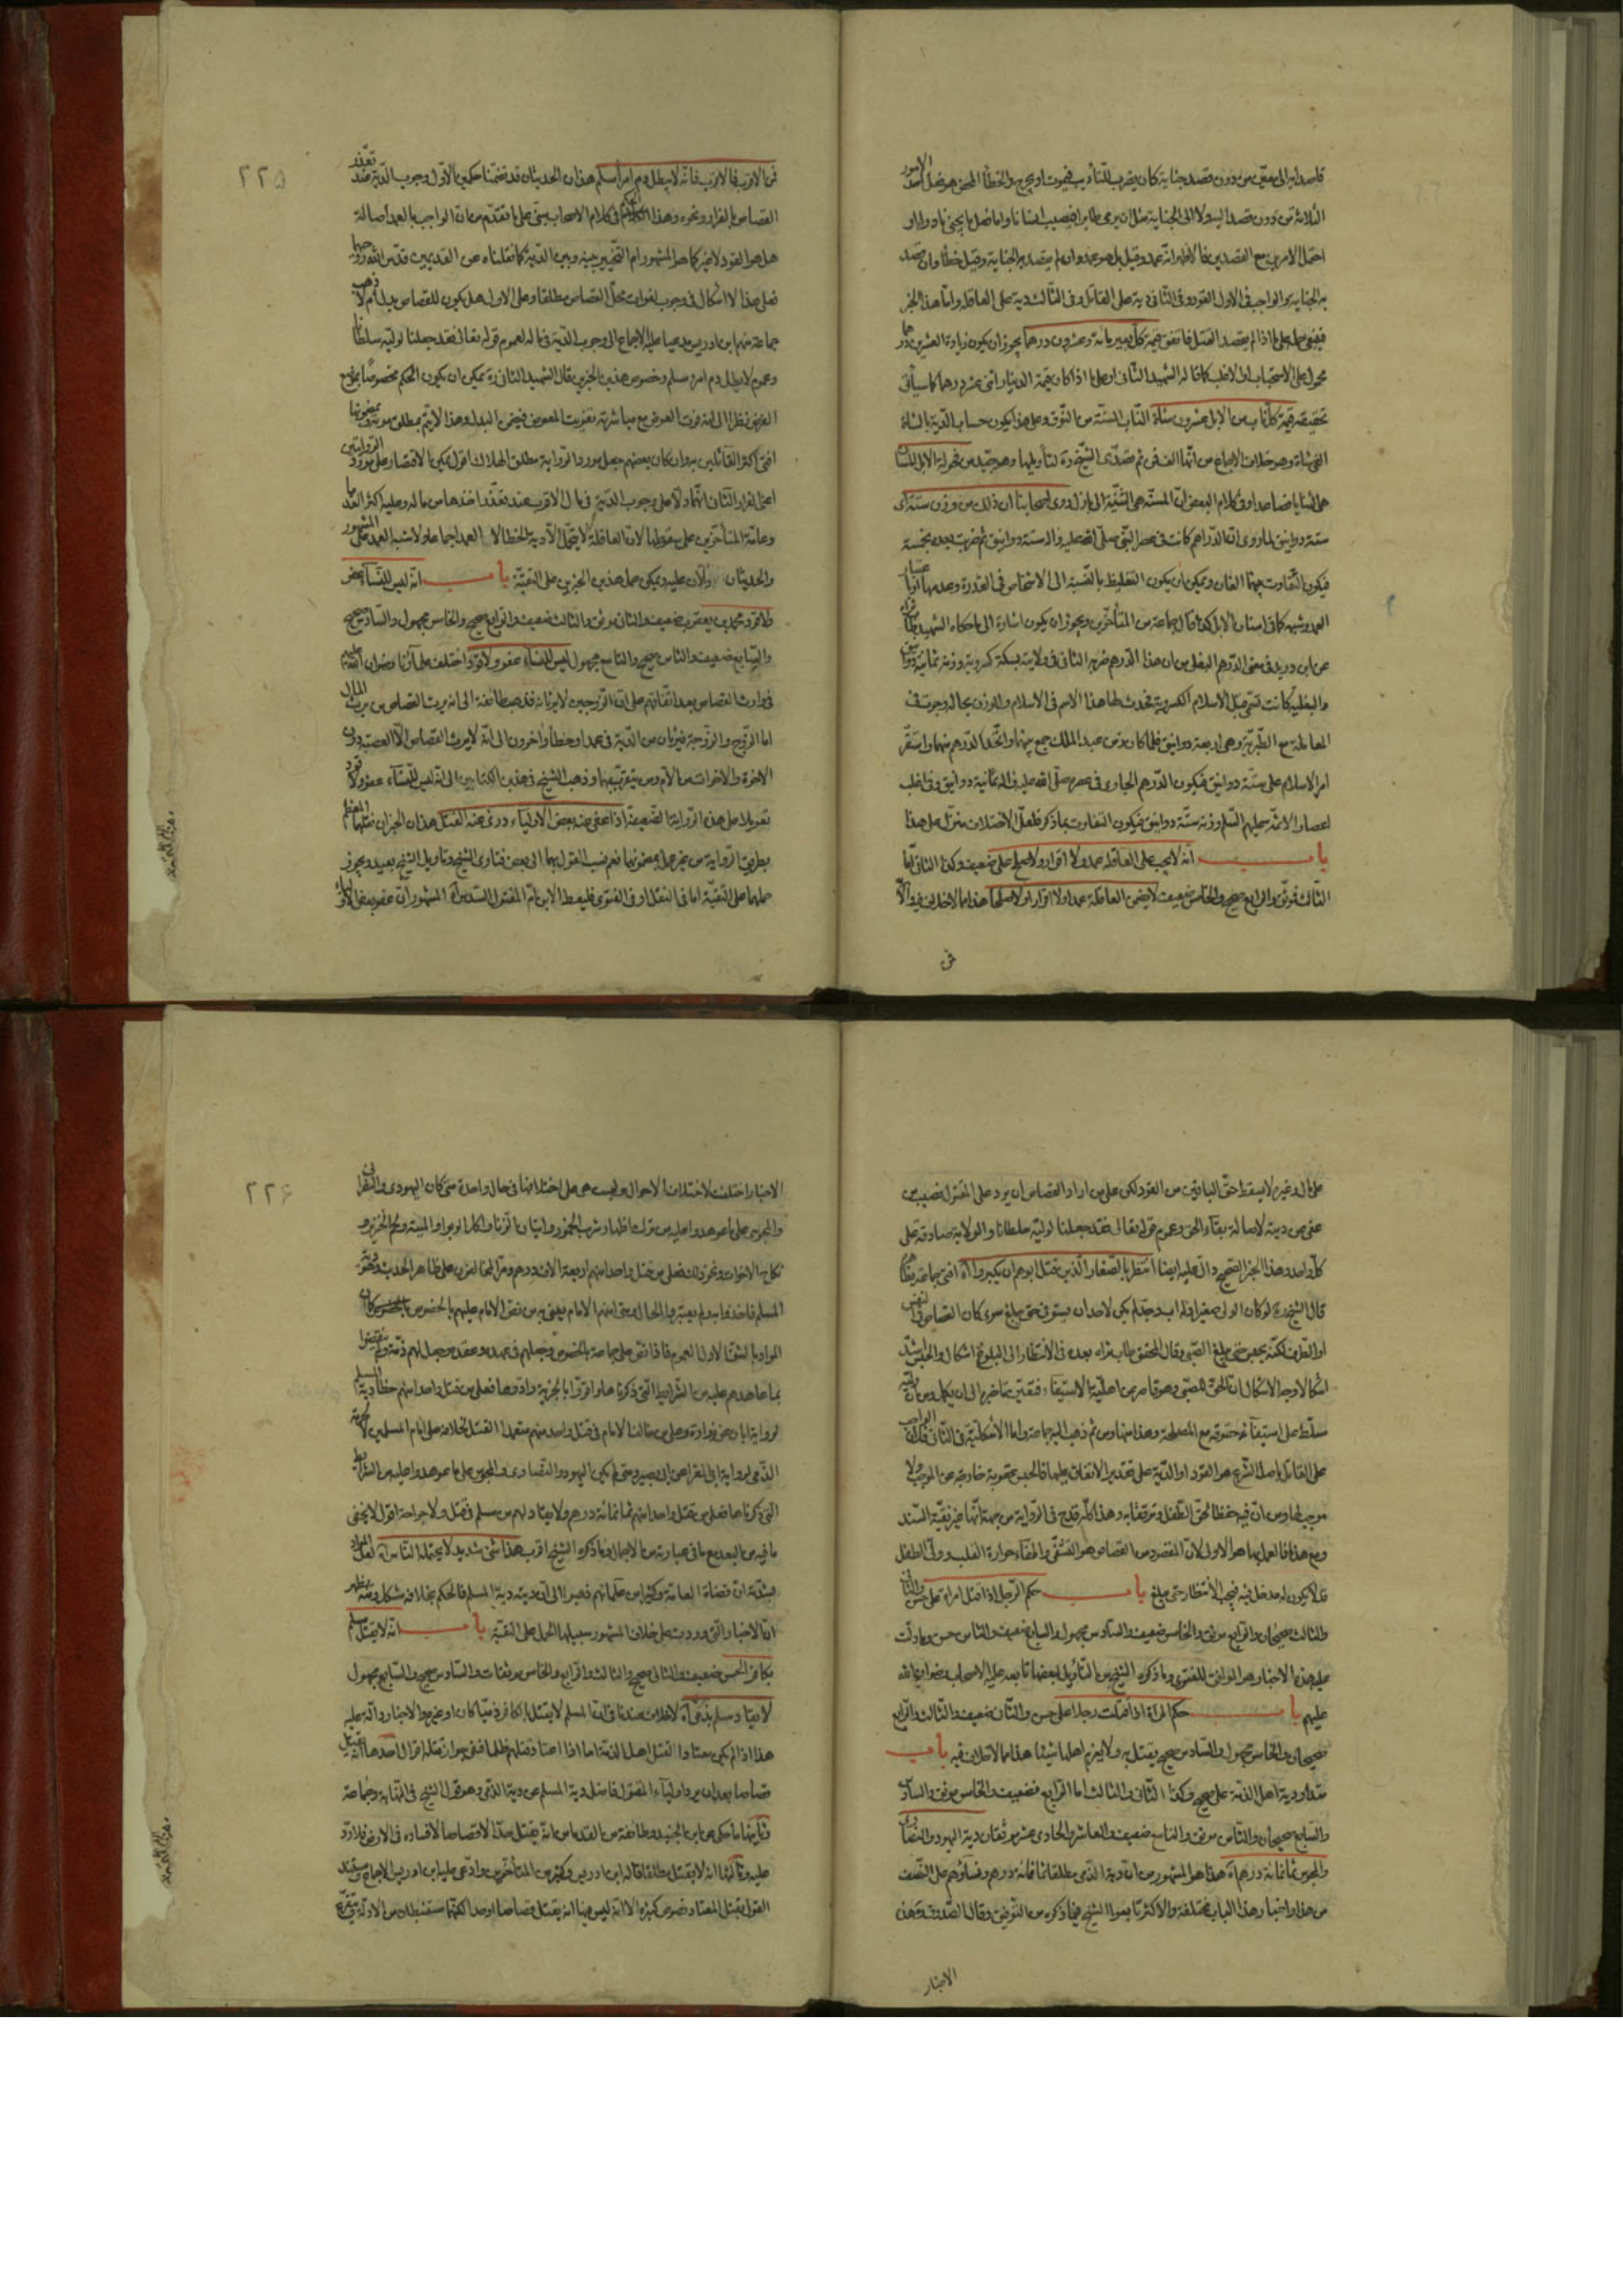 قاصدا به الى معيّن من دون قصد جناية كان يضرب للتأديب فيموت او يجرح والخطأ المحض هو فعل احد الامور
الثلاثة من دون قصد اليه ولا الى الجناية مثل ان يرمى طايرا فيصيب انسانا واما فعل ما يجنى نادرا او
احتمل الامرين مع القصدين فالاظهر انّه عمد وقيل بل هو عمد وان لم يقصد به الجناية وقيل خطأ وان قصد
به الجناية والواجب فى الاول القود وفى الثانى دية على القاتل وفى الثالث دية على العاقلة وامّا هذا الخبر
فينبغى حمله على ما اذا لم يقصد القتل فاتفق قيمة كلّ بعير مائة وعشرون درهما يجوز ان يكون زيادة العشرين درهما
محمول على الاستحباب او الاغلب كما قاله الشهيد الثانى او على ما اذا كان قيمة الدينار اثنى عشر درهما كما سيأتى
تحقيقه قيمة كلّ ناب من الابل عشرون شاة النّاب المسنّة من النّوق وعلى هذا يكون حساب الدّية بالشاة
الفى شاة وهو خلاف الاجماع من انّها الف فمن ثم تصدّى الشيخ ره لتأويلها وهو جيّد من فحولة الابل المسان
هى الثنايا فصاعدا وفى كلام البعض انّ المسنّة هى الثنيّة الى بازل روى اصحابنا ان ذلك من وزن ستة آه
ستة دوانيق لما روى انّ الدّراهم كانت فى عصر النّبى صلّى الله عليه واله ستة دوانيق ثم ضربت بعده بخمسة
فيكون التّفاوت بينهما الفان ويمكن ان يكون التغليظ بالنّسبة الى الاشخاص فى القدرة وعدمها او باعتبار
العمد وشبهه كما فى اسنان الابل كذا قال جماعة من المتأخّرين ويجوز ان يكون اشارة الى ما حكاه الشهيد طاب ثراه
عن ابن دريد فى معنى الدّرهم البغلى من ان هذا الدّرهم ضربه الثانى فى ولايته بسكة كسروية وزنه ثمانية دوانيق
والبغليّة كانت تسمّى قبل الاسلام الكسروية فحدث لها هذا الاسم فى الاسلام والوزن بحاله وجرت فى
المعاملة مع الطّبريّة وهى اربعة دوانيق فلما كان زمن عبد الملك جمع بينهما واتّخذ الدّرهم منهما واستقرّ
امر الاسلام على ستّة دوانيق فيكون الدّرهم الجارى فى عصره صلّى الله عليه واله ثمانية دوانيق وفى اغلب
اعصار الائمّة عليهم السّلم وزنه ستّة دوانيق فيكون التفاوت بما ذكر فلعلّ الاختلاف منزّل على هذا
باب انّه لا يجب على العاقلة عمد ولا اقرار ولا صلح على ضعيف وكذا الثانى امّا
الثّالث فموثّق والرابع صحيح والخامس ضعيف لا يضمن العاقلة عمدا ولا اقرارا ولا صلحا هذا مما لا خلاف فيه والّا
فى
٢٢٥
فمن الاقرب فالاقرب فانّه لا يبطل دم امرأ مسلم هذان الحديثان قد تضمّنا حكمين الاوّل وجوب الديّة عند تعذّر
القصاص بالفرار ونحوه وهذا الحكم فى كلام الاصحاب مبنى على ما تقدّم من ان الواجب بالعمد اصالة
هل هو القود لا غير كما هو المشهور ام التّخيير بينه وبين الدّية كما نقلناه عن القديمين قدّس الله روحهما
فعلى هذا لا اشكال فى وجوبها لفوات محلّ القصاص مطلقا وعلى الاول هل يكون للقصاص بدل أم لا ذهب
جماعة منهم ابن ادريس مدعيا عليه الاجماع الى وجوب الدّية فى ماله لعموم قوله تعالى فقد جعلنا لوليّه سلطانا
وعموم لا يبطل دم امرء مسلم وخصوص هذين الخبرين قال الشهيد الثانى ره يمكن ان يكون الحكم مخصوصا بموضع
الفرض نظرا الى انه فوت العوض مع مباشرته تفويت المعوض فيضمن البدل وهذا لا يتمّ بمطلق موته وبمضمونها
افتى اكثر القائلين به وان كان بعضهم جعل مورد الرواية مطلق الهلاك اقول يمكن الاقتصار على مورد الروايتين
اعنى الفرار الثانى انّهما دلّا على وجوب الدّية فى مال الاقرب عند تعذّر اخذها من ماله وعليه اكثر القدما
وعامّة المتأخّرين على سقوطها لان العاقلة لا يتحمّل الّا دية الخطا لا العمد اجماعا ولا شبه العمد على المشهور
والحديثان دالّان عليه ويمكن حمل هذين الخبرين على التقيّة باب انّه ليس للنّساء عفو
ولا قود محمد بن يعقوب ضعيف والثانى موثق والثالث ضعيف والرابع صحيح والخامس مجهول والسّادس صحيح
والسّابع ضعيف والثامن صحيح والتاسع مجهول ليس للنّساء عفو ولا قود اختلف علمآؤنا رضوان الله عليهم
فى وارث القصاص بعد اتّفاقهم على انّ الزوجين لا يرثانه فذهب طائفة الى انه يرث القصاص من يرث المال
اما الزّوج والزوّجة فيرثان من الدّية فى عمد او خطأ واخرون الى انّه لا يرث القصاص الّا العصبة دون
الاخوة والاخوات من الام ومن يتقرّب بهما وذهب الشيخ فى هذين الكتابين الى انّه ليس للنّساء عفو ولا قود
تعويلا على هذه الرّواية الضّعيفة اذا عفى عنه بعض الاولياء درئ عنه القتل هذان الخبران نقلهما المعظم
بطريق الرّواية من غير عمل بمضمونهما نعم نسب القول بهما الى بعض فتاوى الشيخ وتأويل الشيخ بعيد ويجوز
حملهما على التقيّة اما فى النقل او فى الفتوى فليعط الابن امّ المقتول السّدس آه المشهور انّ عفو بعض الاوليا
على مال او غيره لا يسقط حقّ الباقين من القود لكن على من اراد القصاص ان يرد على المقتول نصيب من
عفى من ديته لاصالة بقاء الحق وعموم قوله تعالى فقد جعلنا لوليّه سلطانا والولاية صادقة على
كلّ واحد وهذا الخبر الصّحيح دالّ عليه ايضا انتظر بالصّغار الّذين قتل ابوهم ان يكبروا آه افتى جماعة بظاهره
قال الشّيخ ره لو كان الولى صغيرا وله اب وجدّ لم يكن لاحد ان يستوفى حتى يبلغ سوى كان القصاص فى النفس
او الطّرف لكنّه يحبس حتى يبلغ الصّبى وقال المحقق طاب ثراه بعده فى الانتظار الى البلوغ اشكال والحبس اشدّ
اشكالا وجه الاشكال ان الحقّ للصبى وهو قاصر عن اهليّة الاستيفاء فيتعيّن تأخيره الى ان يكمل ومن ان وليّه
مسلّط على استيفآء حقوقه مع المصلحة وهذا منها ومن ثم ذهب اليه جماعة واما الاشكليّة فى الثّانى فلان الواجب
على القاتل باصل الشّرع هو القود او الدّية على تقدير الاتفاق عليها فالحبس عقوبة خارجة عن الموجب ولا
موجب لها ومن انّ فيه حفظا لحقّ الطّفل وتوثّقا به وهذا كلّه قدح فى الرّواية من جهة انّها غير نقيّة السّند
ومع هذا فالعمل بها هو الاولى لانّ المقصود من القصاص هو التشفّى واطفآء حرارة القلب وولّى الطفل
قد لا يكون له مدخل فيه فيجب الانتظار حتى يبلغ باب حكم الرّجل اذا قتل امراة على حسن والثّانى
والثالث صحيحان والرّابع موثق والخامس ضعيف والسّادس مجهول والسابع ضعيف والثّامن حسن وما دلّت
عليه هذه الاخبار هو الموافق للفتوى وما ذكره الشيخ من التّأويل لبعضها تابعه عليه الاصحاب رضوان الله
عليهم باب حكم المراة اذا قتلت رجلا على حسن والثّانى ضعيف والثّالث والرّابع
صحيحان والخامس مجهول والسّادس صحيح يقتل به ولا يغرم اهلها شيئا هذا مما لا خلاف فيه باب
مقدار دية اهل الذمّة على صحيح وكذا الثّانى والثالث اما الرّابع فضعيف والخامس موثق والسادس
والسّابع صحيحان والثّامن موثق والتاسع ضعيف والعاشر والحادى عشر موثّقان دية اليهود والنّصارى
والمجوس ثمانمائة درهم آه هذا هو المشهور من انّ دية الذّمى مطلقا ثمانمائة درهم ونسآؤهم على النّصف
من هذا واخبار هذا الباب مختلفة والاكثر تابعوا الشيخ فيما ذكره من التوفيق وقال الصّدوق ره هذه
الاخبار
٢٢٦
الاخبار اختلفت لاختلاف الاحوال وليست هى على اختلافها فى حال واحدة متى كان اليهودى والنّصرانى
والمجوسى على ما عوهدوا عليه من ترك اظهار شرب الخمور واتيان الزّنا واكل الربوا والميتة ولحم الخنزير و
نكاح الاخوات ونحو ذلك فعلى من قتل واحدا منهم اربعة الاف درهم ومرّ المخالفون على ظاهر الحديث
المسلم فاخذوا به ولم يعتبروا الحال ومتى امنهم الامام يعنى به من نصّ الامام عليهم بالخصوص
المراد بالشقّ الاول العموم فاذا نصّ على جماعة بالخصوص وجعلهم فى عهده وعقده وجعل لهم ذمّة ولم ينقضوا
بما عاهدهم عليه من الشّرايط الّتى ذكرناها واقرّوا بالجزية وادّوها فعلى من قتل واحدا منهم خطأ دية المسلم
لرواية ابان عن زرارة وعلى من خالف الامام فى قتل واحد منهم متعمدا القتل لخلافه على امام المسلمين لا لحرمة
الذّمى لرواية ابى المغرا عن ابى بصير ومتى لم يكن اليهود والنّصارى والمجوس على ما عوهدوا عليه من الشرايط
الّتى ذكرناها فعلى من قتل واحدا منهم ثمانمائة درهم ولا يقاد لهم من مسلم فى قتل ولا جراحة اقول لا يخفى
ما فيه من البعد مع ما فى عبارته من الاجمال وما ذكره الشيخ اقرب هذا شئ شديد لا يحتمله النّاس آه لعلّ المراد
بشدّته انّ قضاة العامّة وكثيرا من علمآئهم ذهبوا الى انّ ديته دية المسلم فالحكم بخلافه مشكل ومنه يظهر
انّ الاخبار الّتى وردت على خلاف المشهور سبيلها الحمل على التقيّة باب انّه لا يقتل مسلم
بكافر الحسن ضعيف والثانى صحيح والثالث والرّابع والخامس موثقات والسّادس صحيح والسّابع مجهول
لا يقاد مسلم بذمّى آه لا خلاف عندنا فى انّ المسلم لا يقتل بالكافر ذميّا كان او غيره والاخبار دآلّة عليه
هذا اذا لم يكن معتادا لقتل اهل الذمّة اما اذا اعتاد قتلهم ظلما ففى جواز قتله اقوال احدها انّه يقتل
قصاصا بعد ان يرد اوليآء المقتول فاضل دية المسلم عن دية الذّمى وهو قول الشيخ فى النّهاية وجماعة
وثانيها ما حكى عن ابن الجنيد وطائفة من القدماء من انّه يقتل حدّا لا قصاصا لافساده فى الارض فلا ردّ
عليه وثالثها انّه لا يقتل مطلقا قاله ابن ادريس وكثير من المتأخّرين وادّعى عليه ابن ادريس الاجماع ومستند
القول بقتل المعتاد نصوص كثيرة الّا انّه ليس فيها انه يقتل قصاصا او حدا لكنّهما مستنبطان من الادلّة ويتفرّع